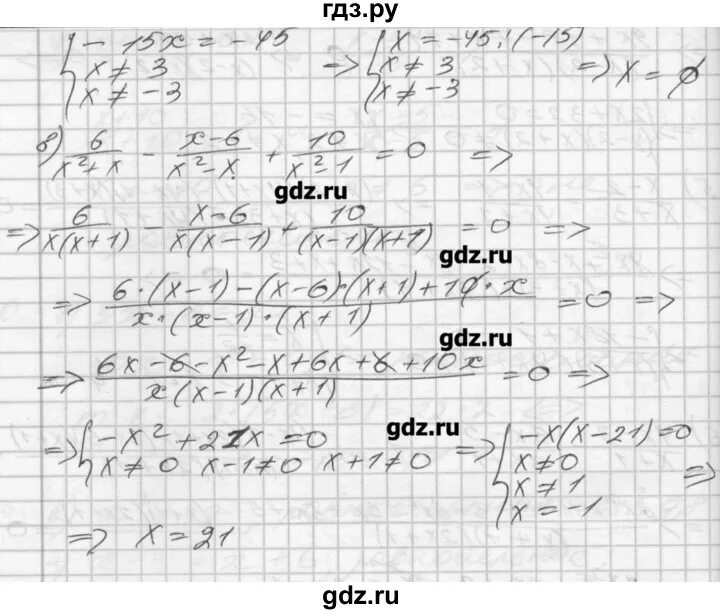 гдз.ру
{ - 15x = -45 => { x = -45 : (-15)
x ≠ 3 x ≠ 3 => x = ∅
x ≠ -3 x ≠ -3
8) 6/(x²+x) - (x-6)/(x²-x) + 10/(x²-1) = 0 =>
gdz.ru
=> 6/(x(x+1)) - (x-6)/(x(x-1)) + 10/((x-1)(x+1)) = 0 =>
gdz.ru
=> (6·(x-1)-(x-6)·(x+1)+10·x)/(x·(x-1)·(x+1)) = 0 =>
gdz.ru
=> (6x-6-x²-x+6x+6+10x)/(x(x-1)(x+1)) = 0 =>
gdz.ru
=> { -x²+21x=0 => { -x(x-21)=0
x≠0 x-1≠0 x+1≠0 x≠0 =>
x≠1
x=-1
=> x=21
gdz.ru